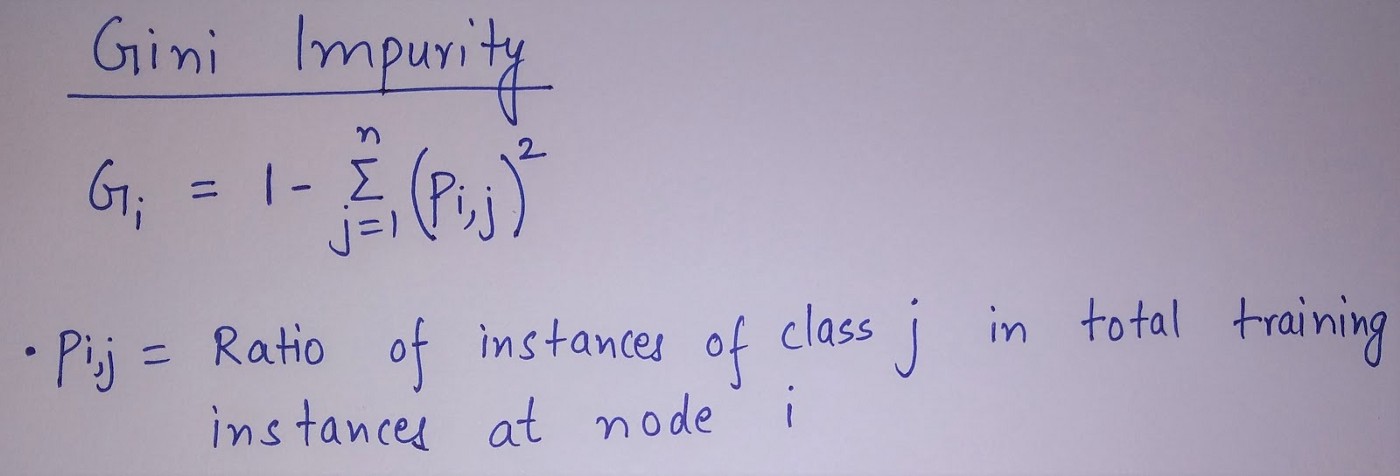 Gini Impurity
Gi = 1 - Σ_{j=1}^{n} (Pi,j)²
• Pi,j = Ratio of instances of class j in total training
instances at node i